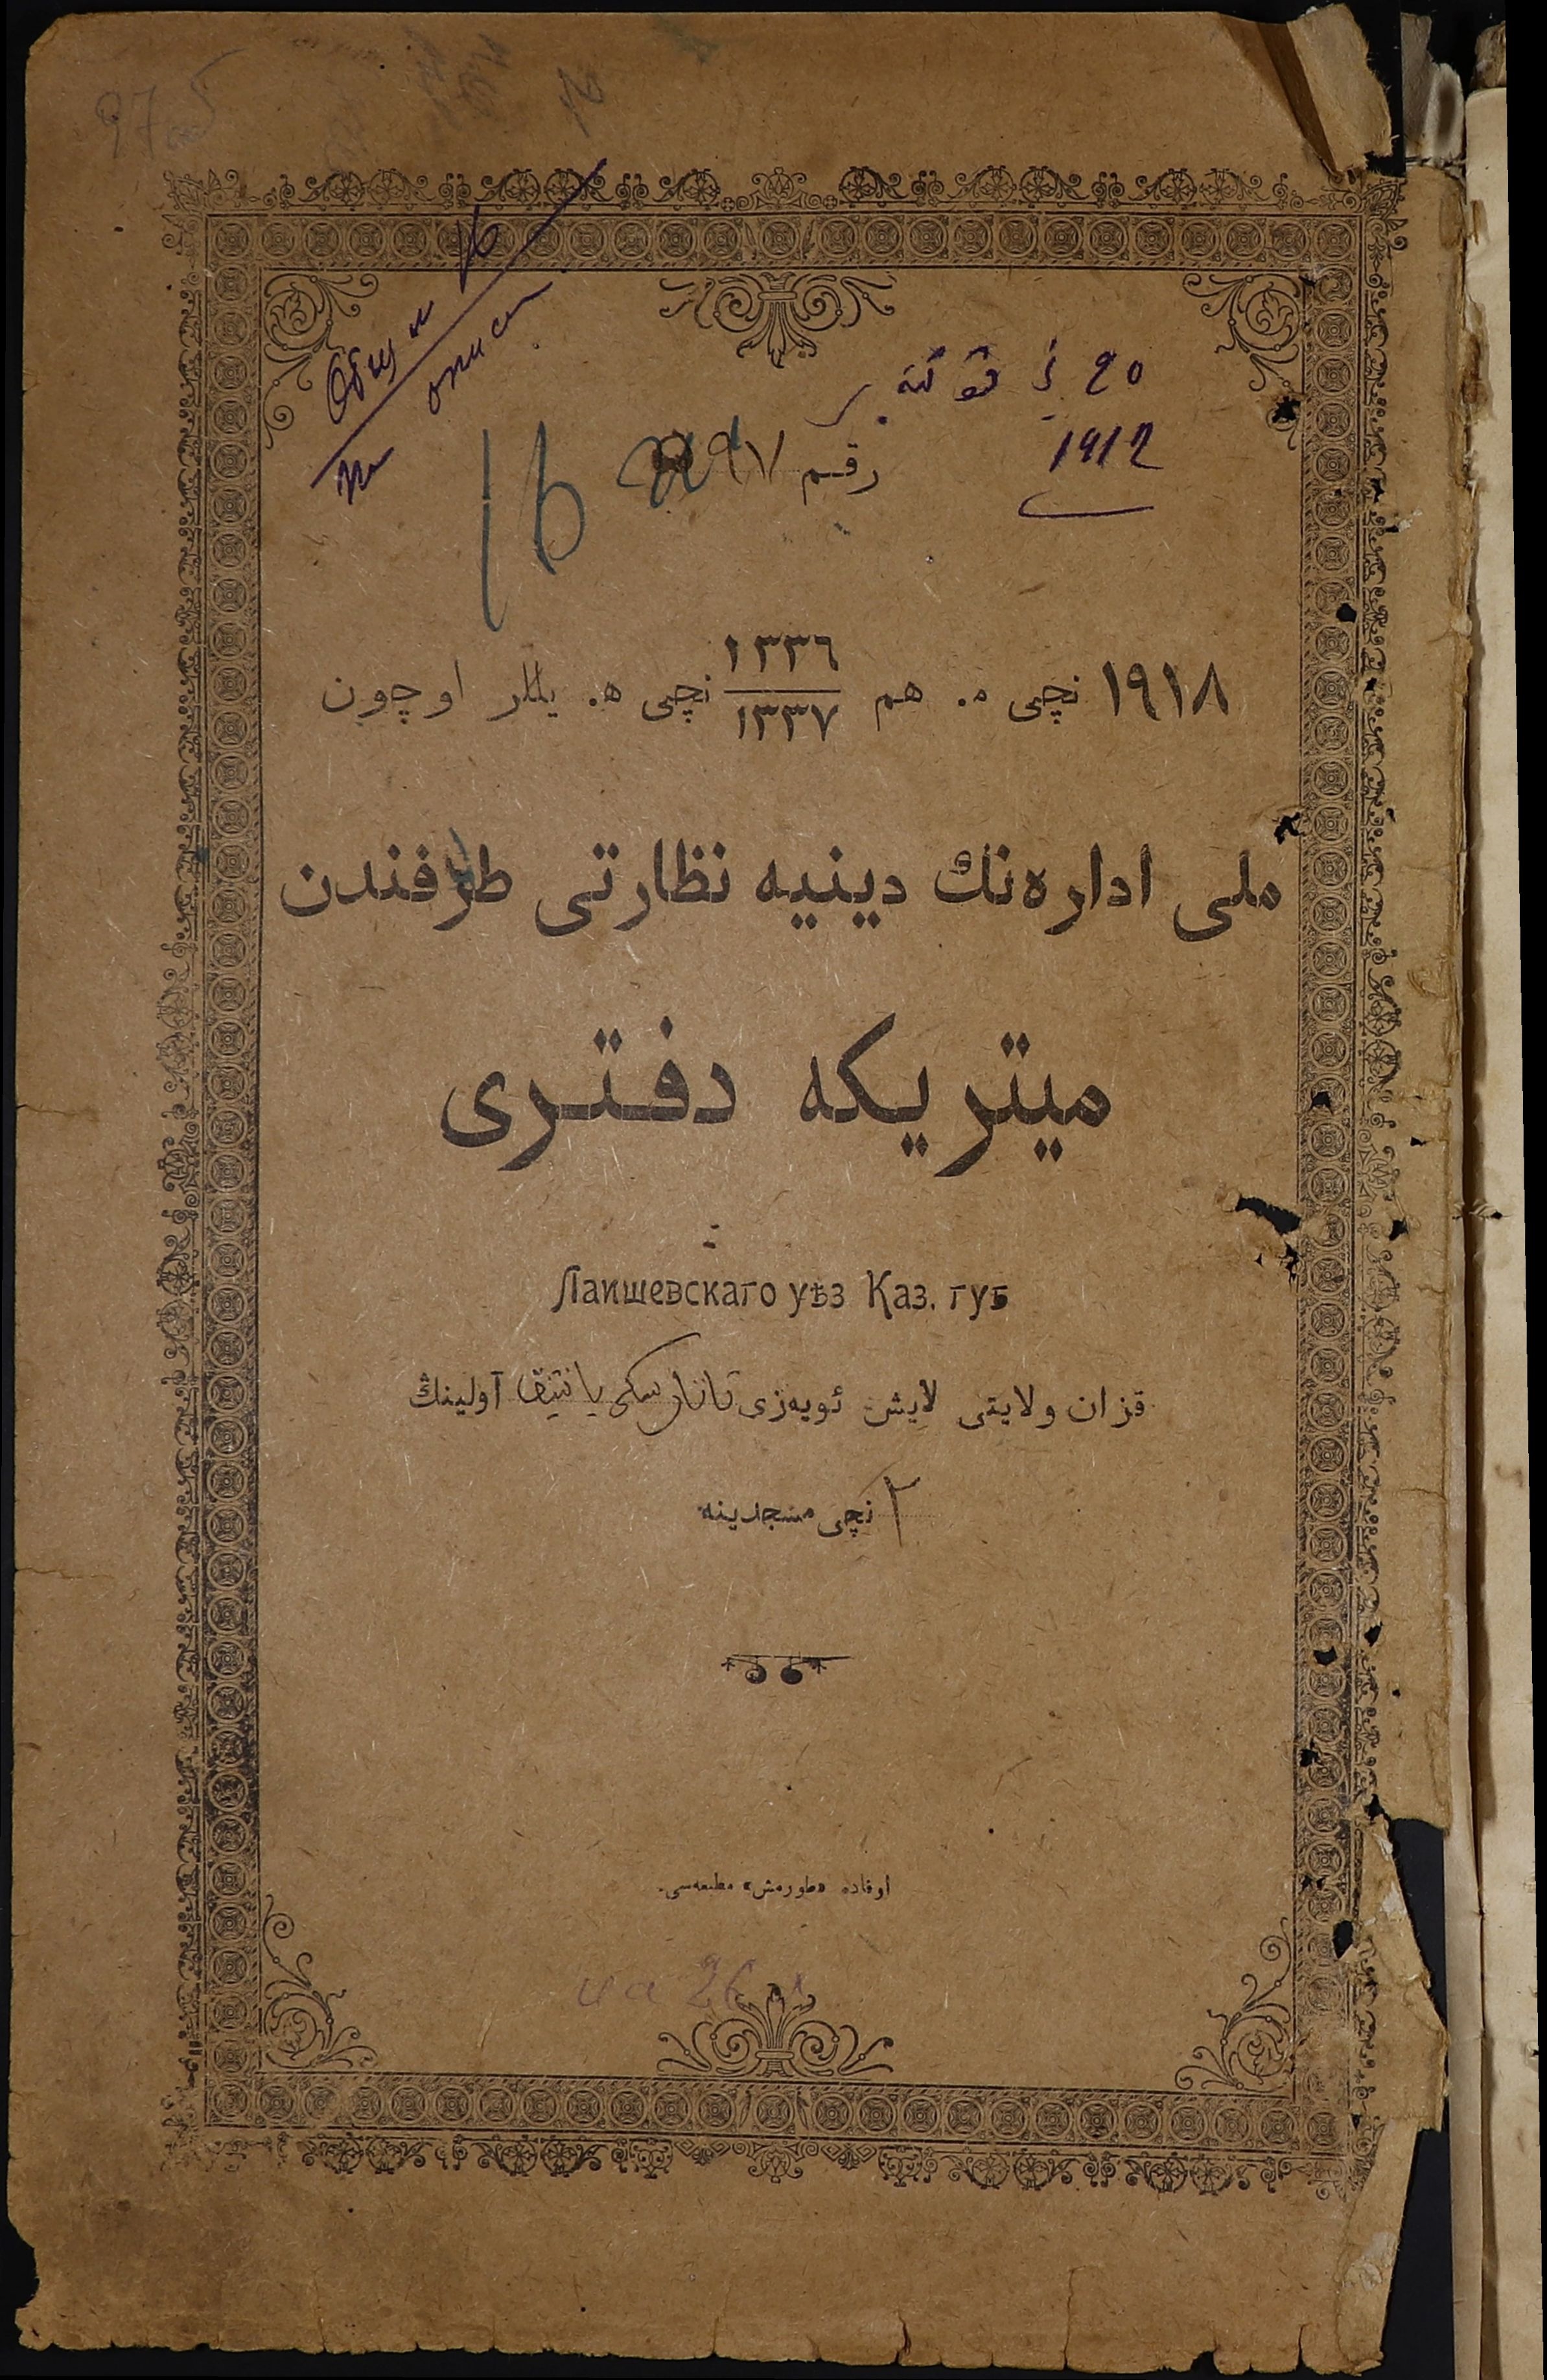 Общ н 16
по описи
1912
16
رقم
١٩١٨ نچی ٥. هم ١٣٣٦/١٣٣٧ نچی ٥. یللر اوچون
ملی ادارەنڭ دینیه نظارتی طرفندن
میتریکه دفتری
Лаишевскаго уѣз Каз. губ
قزان ولایتی لایش ئویەزی تاتارسکی یانتیق آولینڭ
٢ نچی مسجدینه
اوفاده «طورمش» مطبعەسی.
на 26